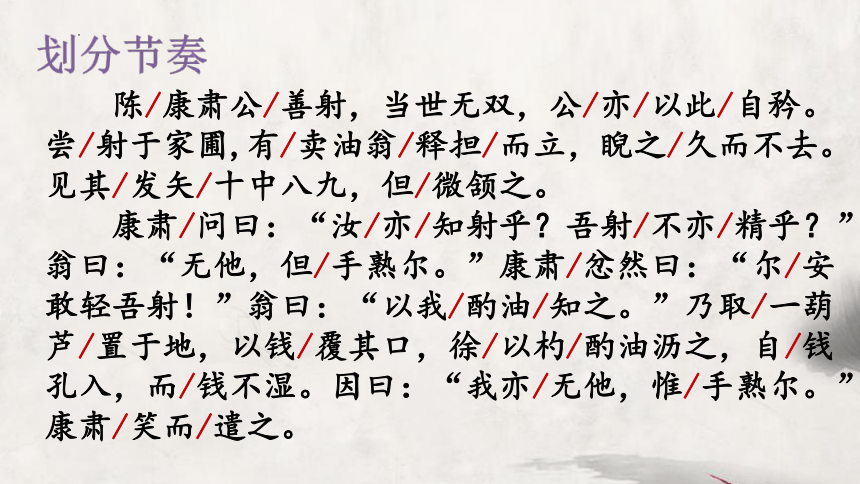 划分节奏
陈/康肃公/善射，当世无双，公/亦/以此/自矜。
尝/射于家圃,有/卖油翁/释担/而立，睨之/久而不去。
见其/发矢/十中八九，但/微颔之。
康肃/问曰：“汝/亦/知射乎？吾射/不亦/精乎？”
翁曰：“无他，但/手熟尔。”康肃/忿然曰：“尔/安
敢轻吾射！”翁曰：“以我/酌油/知之。”乃取/一葫
芦/置于地，以钱/覆其口，徐/以杓/酌油沥之，自/钱
孔入，而/钱不湿。因曰：“我亦/无他，惟/手熟尔。”
康肃/笑而/遣之。